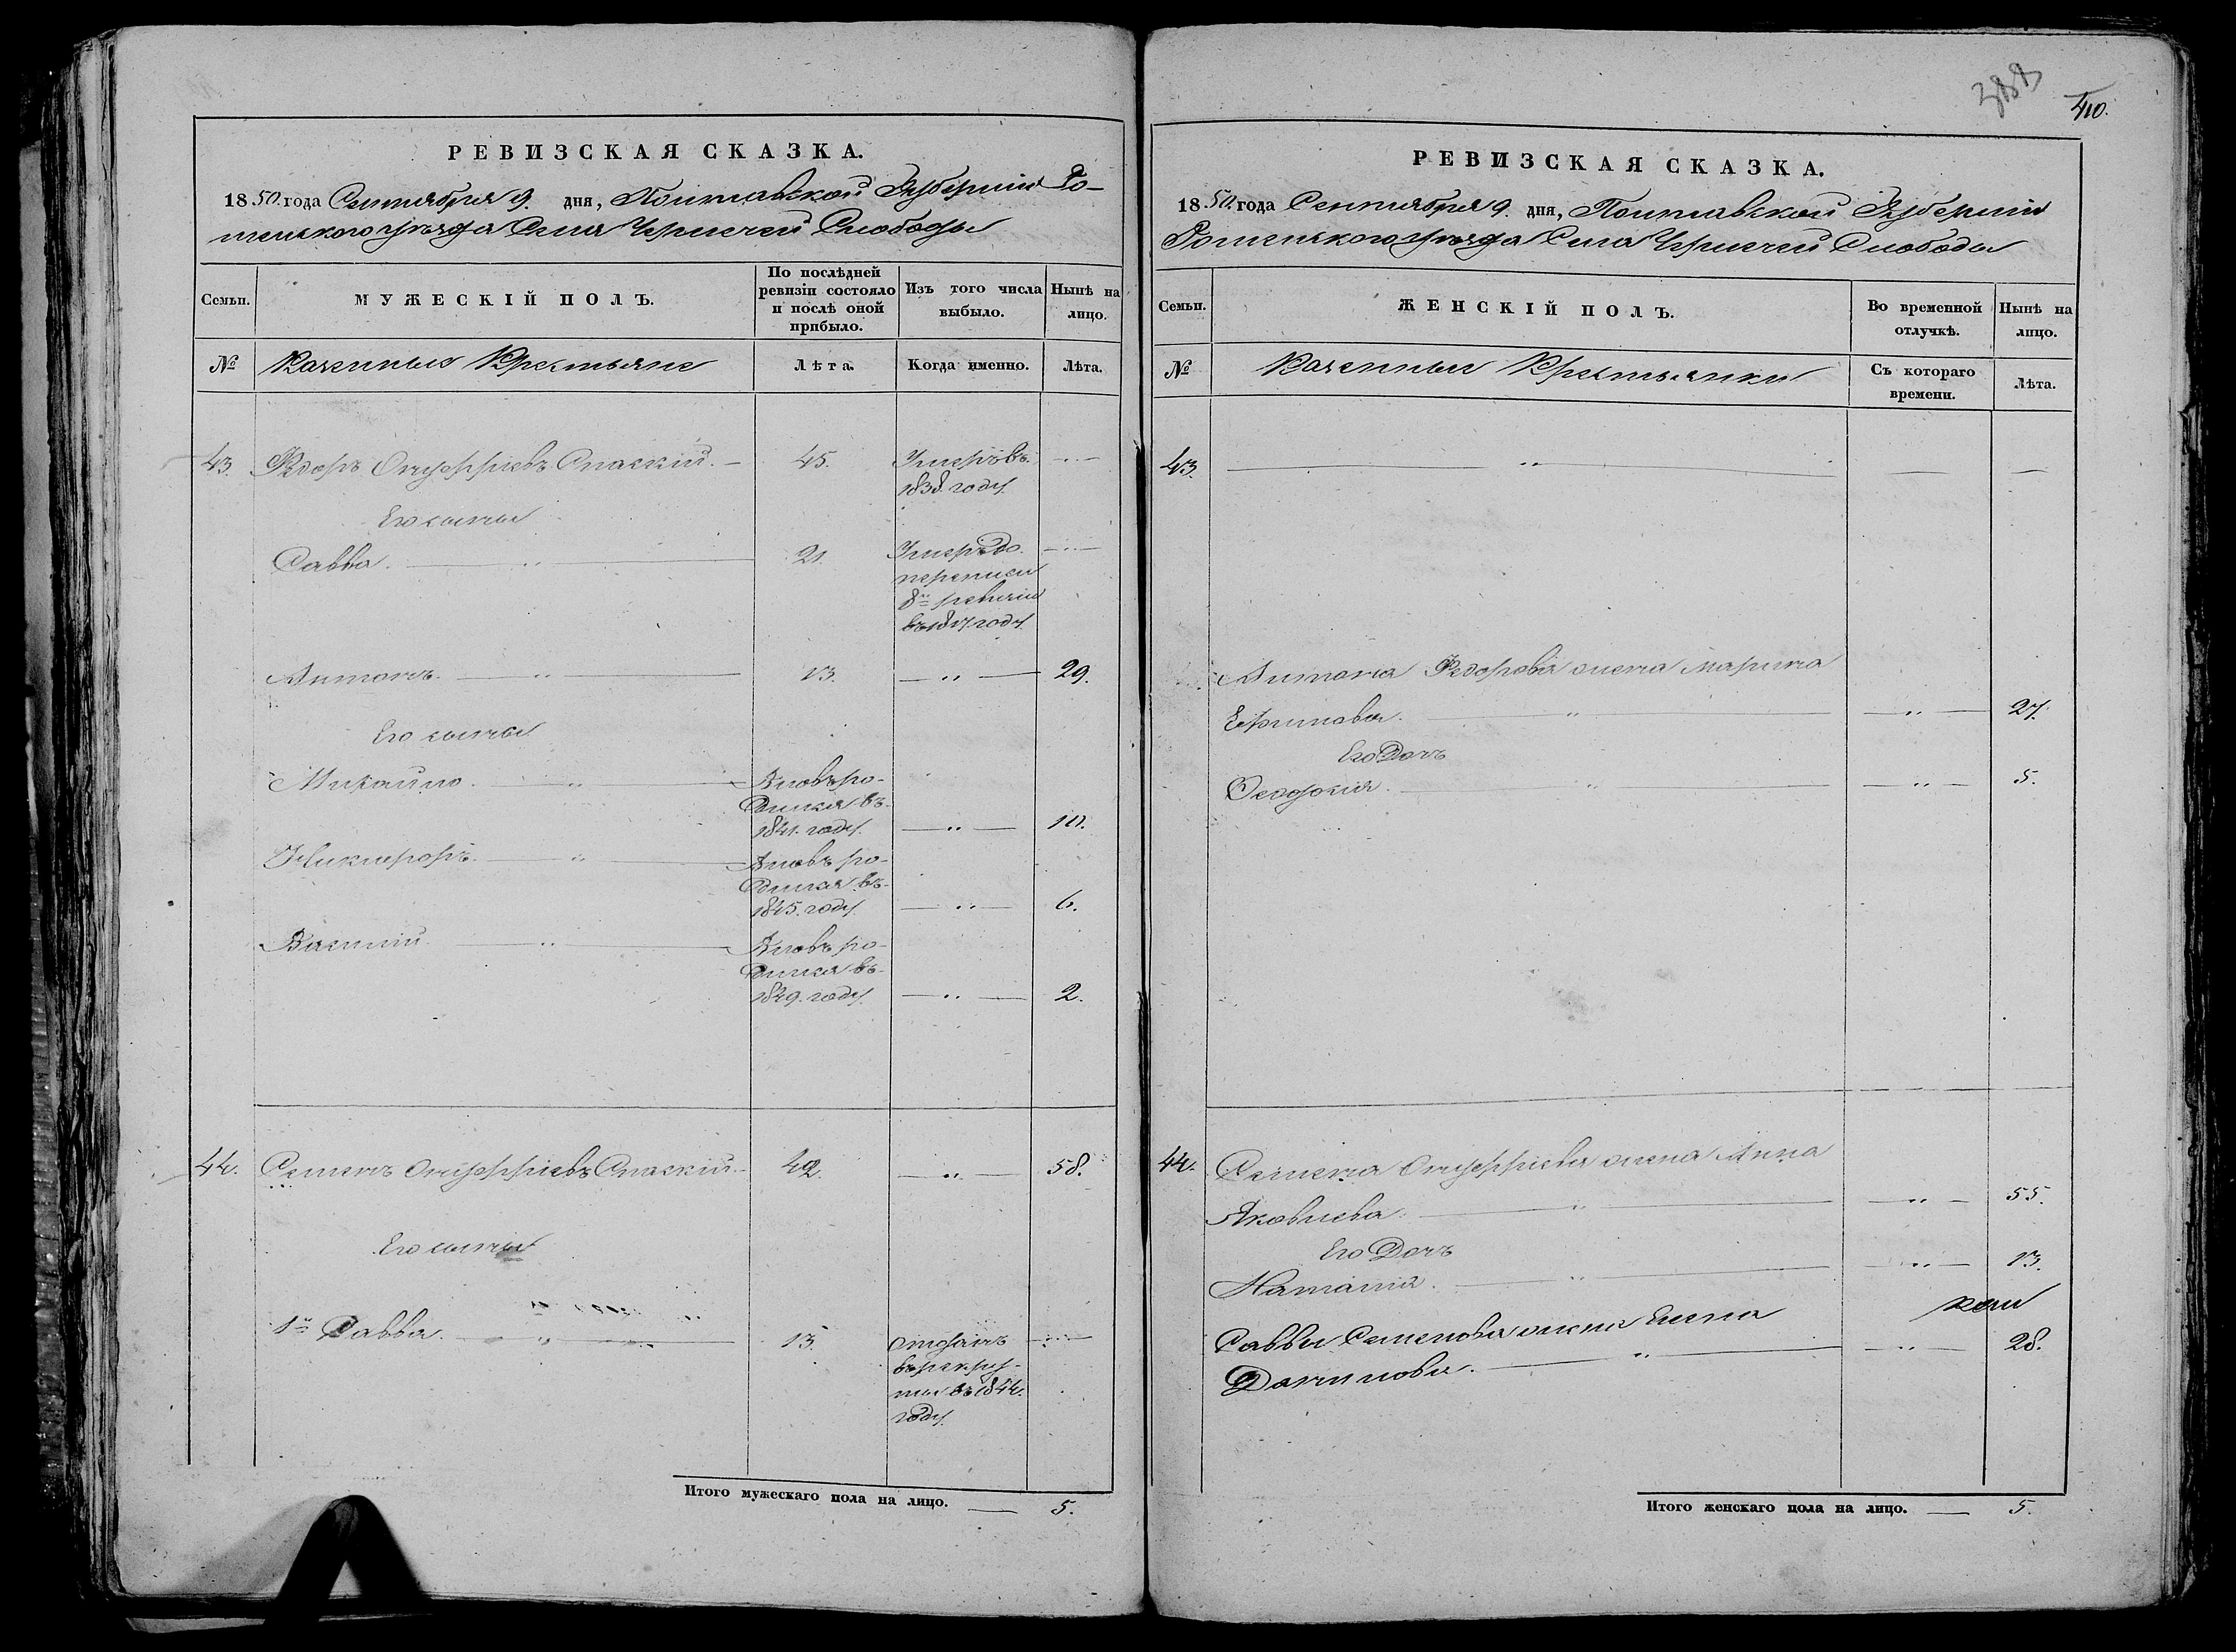 РЕВИЗСКАЯ СКАЗКА.
1850. года Сентября 9. дня, Полтавской Губернии Ро-
менского уезда Села Чернечей Слободы
Семьи.
МУЖЕСКІЙ ПОЛЪ.
По послѣдней ревизіи состояло и послѣ оной прибыло.
Изъ того числа выбыло.
Нынѣ на лицо.
№
Казенные Крестьяне
Лѣта.
Когда именно.
Лѣта.
43. Федоръ Онуфріевъ Спаскій. 45. Умеръ въ
1838. году.
Его сыны
Савва. 21. Умеръ до
переписи
8й ревизіи
Антонъ. 13. 29.
Его сыны
Михайло. Вновь ро-
дился въ
1841. году. 10.
Никифоръ. Вновь ро-
дился въ
1845. году. 6.
Василій. Вновь ро-
дился въ
1849. году. 2.
44. Семенъ Онуфріевъ Спаскій. 42. 58.
Его сыны
1й Савва. 13. отданъ
въ рекру-
ты въ 1844.
году.
Итого мужескаго пола на лицо. 5.
388
410.
РЕВИЗСКАЯ СКАЗКА.
1850. года Сентября 9. дня, Полтавской Губернии
Роменского уезда Села Чернечей Слободы
Семьи.
ЖЕНСКІЙ ПОЛЪ.
Во временной отлучкѣ.
Нынѣ на лицо.
№
Казенные Крестьянки
Съ котораго времени.
Лѣта.
43.
Антона Федорова жена Марина
Ефимова. 27.
Его Дочь
Феодосия. 5.
44. Семена Онуфріева жена Анна
Яковлева. 55.
Его Дочь
Наталия. 13.
Саввы Семенова жена Елена
Данилова. 28.
Итого женскаго пола на лицо. 5.